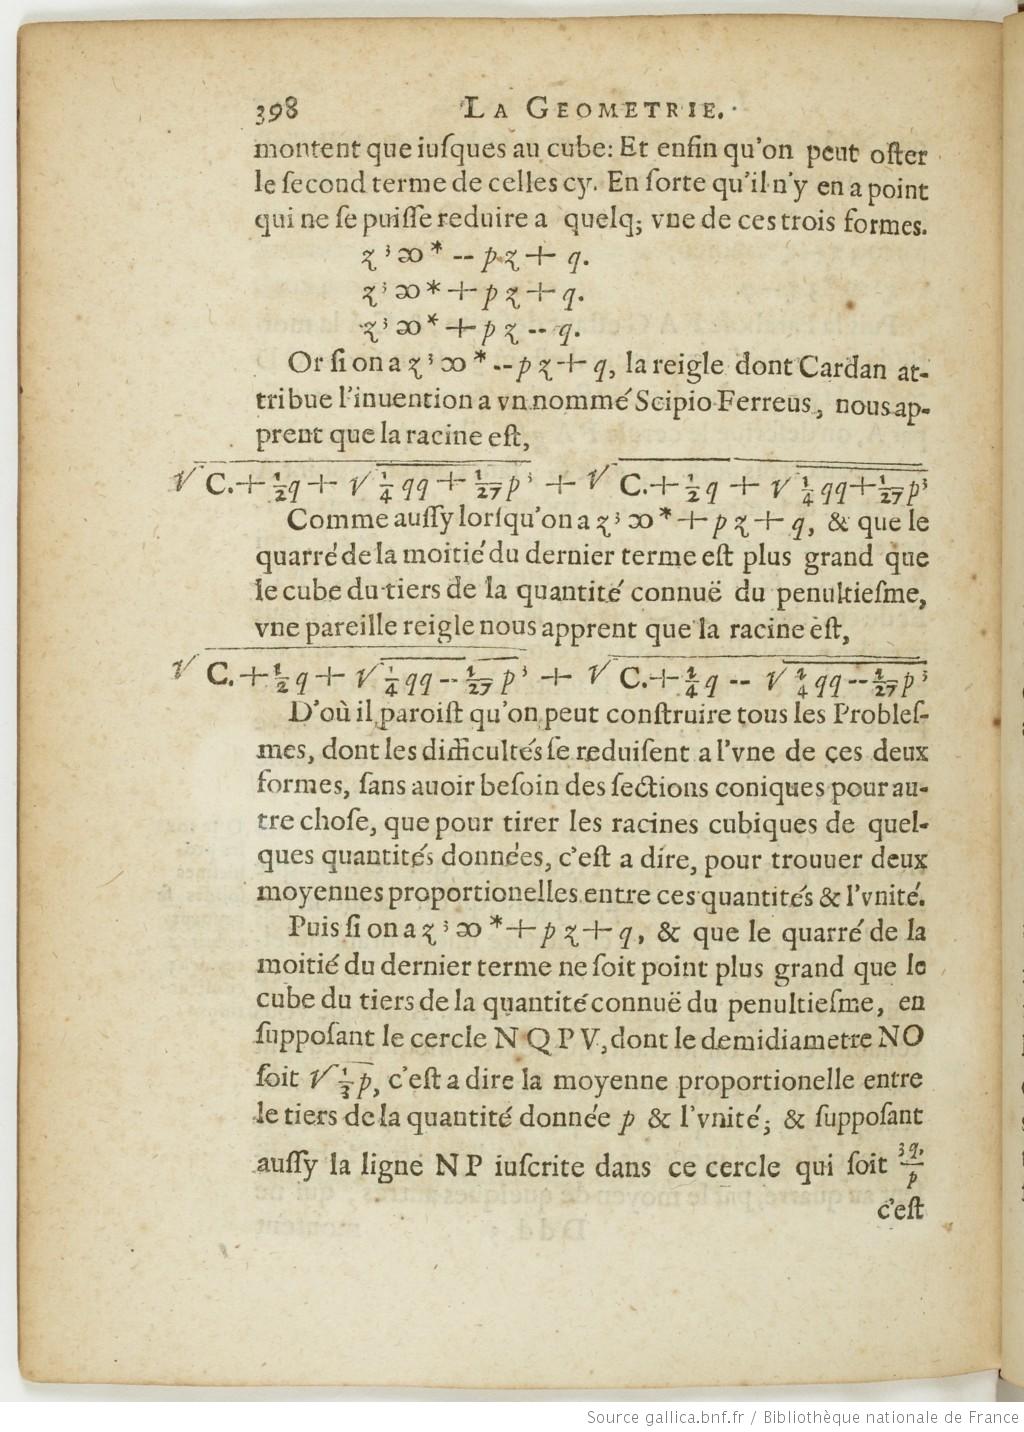 398 LA GEOMETRIE.
montent que iusques au cube: Et enfin qu'on peut oster
le second terme de celles cy. En sorte qu'il n'y en a point
qui ne se puisse reduire a quelq; vne de ces trois formes.
z³ ꝏ * -- p z + q.
z³ ꝏ * + p z + q.
z³ ꝏ * + p z -- q.
Or si on a z³ ꝏ * -- p z + q, la reigle dont Cardan at-
tribue l'inuention a vn nommé Scipio Ferreus, nous ap-
prent que la racine est,
√ C. + ½ q + √ ¼ qq + 1/27 p³ + √ C. + ½ q + √ ¼ qq + 1/27 p³
Comme aussy lorsqu'on a z³ ꝏ * + p z + q, & que le
quarré de la moitié du dernier terme est plus grand que
le cube du tiers de la quantité connuë du penultiesme,
vne pareille reigle nous apprent que la racine est,
√ C. + ½ q + √ ¼ qq -- 1/27 p³ + √ C. + ¼ q -- √ ¼ qq -- 1/27 p³
D'où il paroist qu'on peut construire tous les Probles-
mes, dont les difficultés se reduisent a l'vne de ces deux
formes, sans auoir besoin des sections coniques pour au-
tre chose, que pour tirer les racines cubiques de quel-
ques quantités données, c'est a dire, pour trouuer deux
moyennes proportionelles entre ces quantités & l'vnité.
Puis si on a z³ ꝏ * + p z + q, & que le quarré de la
moitié du dernier terme ne soit point plus grand que le
cube du tiers de la quantité connuë du penultiesme, en
supposant le cercle N Q P V, dont le demidiametre NO
soit √ ⅓ p, c'est a dire la moyenne proportionelle entre
le tiers de la quantité donnée p & l'vnité; & supposant
aussy la ligne N P iuscrite dans ce cercle qui soit 3q/p
c'est
Source gallica.bnf.fr / Bibliothèque nationale de France